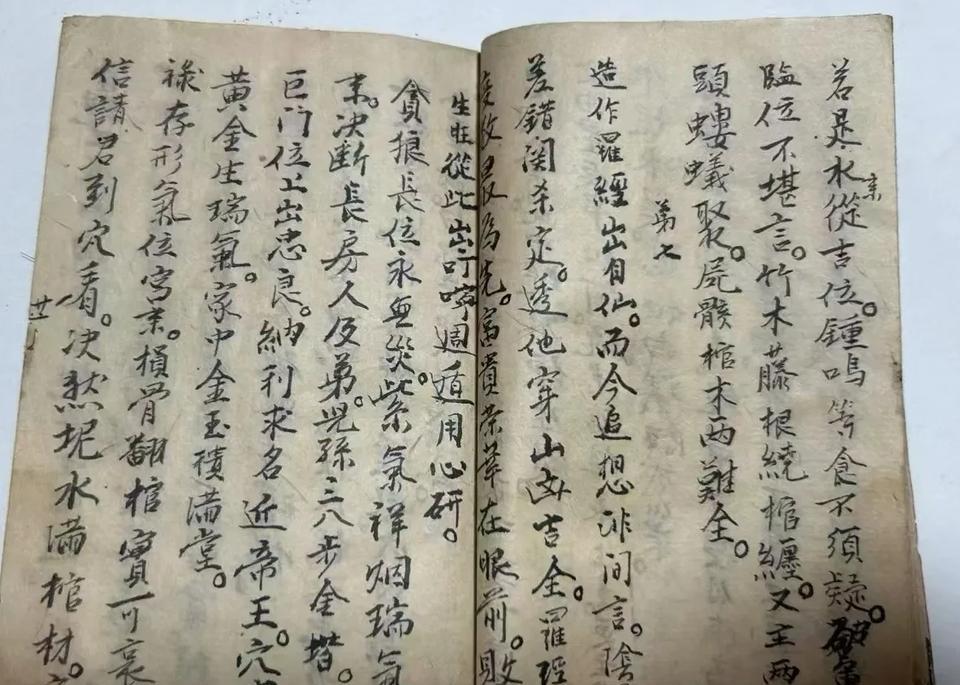 若是水從吉位。鍾鳴等食不須疑。破軍
来
臨位不堪言。竹木藤根繞棺纏。又主兩
頭螻蟻聚。屍骸棺木兩難全。
第七
造作羅經出自仙。而今追想非閒言。陰
差錯関杀定。透他穿山凶吉全。羅經
收最為先。富貴荣華在眼前。敗
生旺從此出叮嚀週遁用心研。
貪狼長位永無災。紫氣祥烟瑞氣
来。决斷長房人及弟。児孫三八步金堦。
巨门位上出忠良。納利求名近帝王。穴
黄金生瑞氣。家中金玉積满堂。
禄存形氣位寫来。損骨翻棺實可哀
信請君到穴看。决然坭水满棺材。